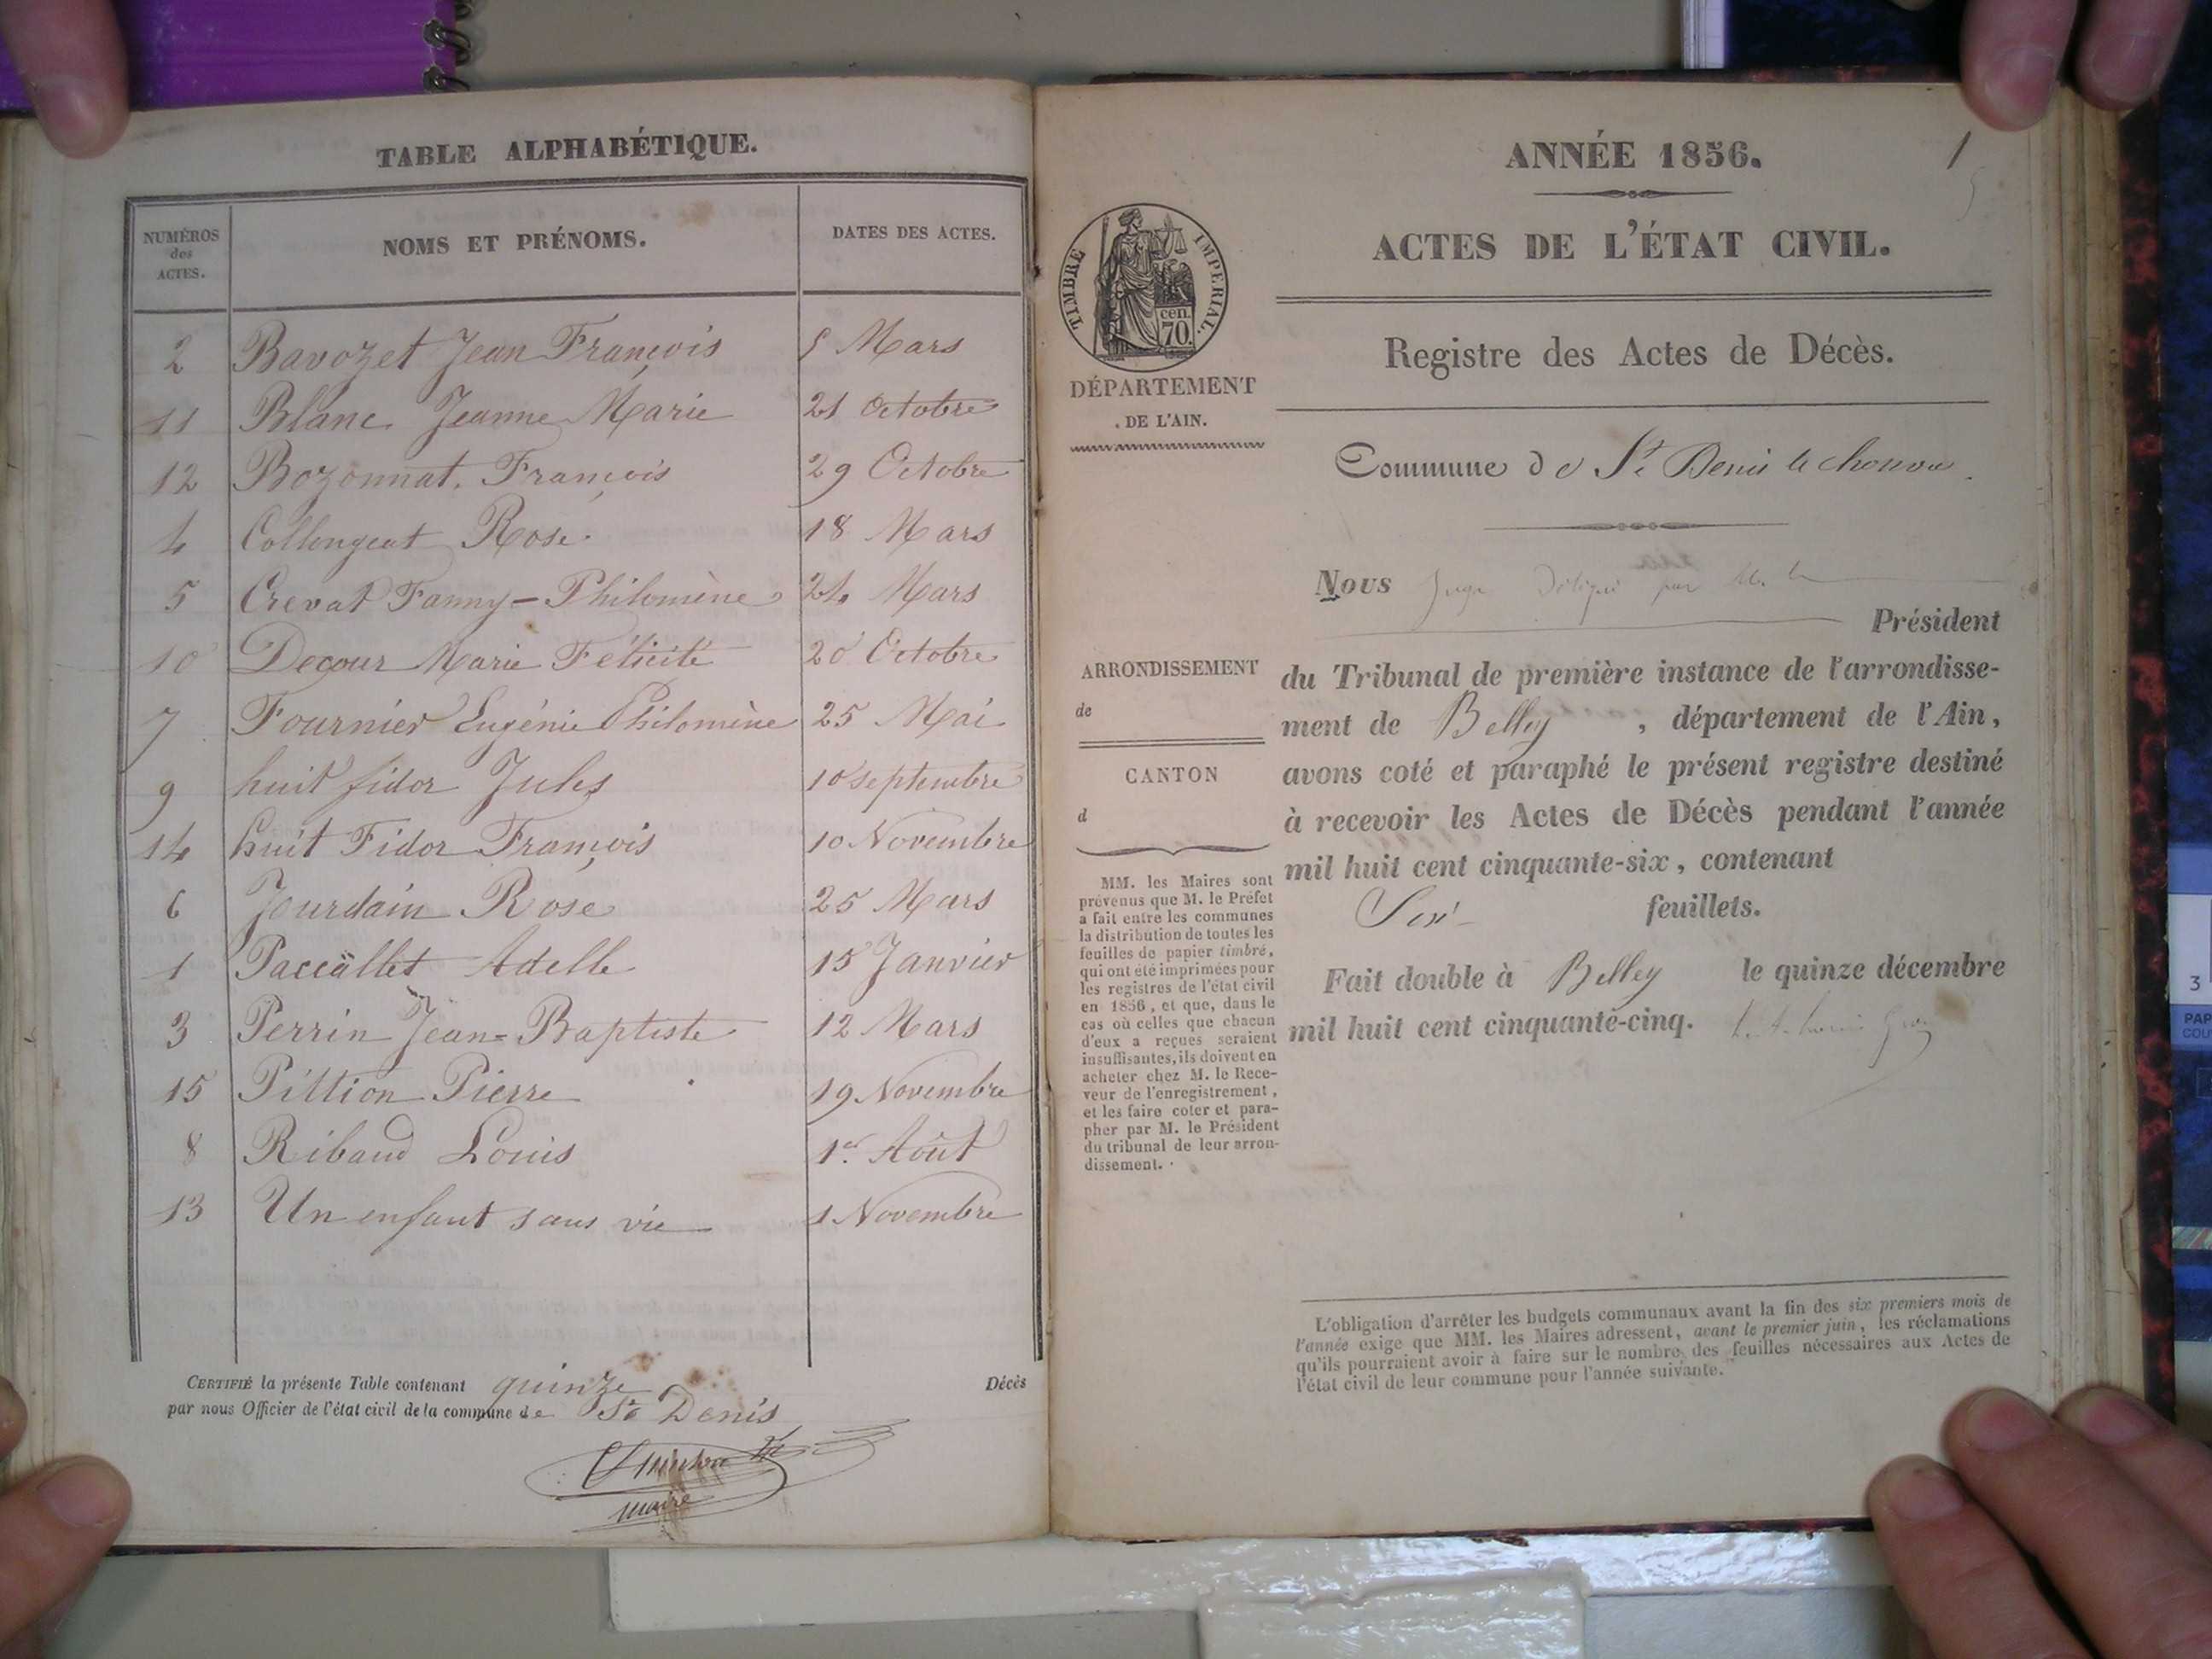 TABLE ALPHABÉTIQUE.
NUMÉROS des ACTES. NOMS ET PRÉNOMS. DATES DES ACTES.
2 Bavozet Jean François 5 Mars
11 Blanc Jeanne Marie 21 Octobre
12 Bozonnat. François 29 Octobre
4 Collengeat Rose 18 Mars
5 Crevat Fanny-Philomène 24 Mars
10 Deçour Marie Félicité 20 Octobre
7 Fournier Eugénie Philomène 25 Mai
9 huit fidor Jules 10 septembre
14 huit Fidor François 10 Novembre
6 Jourdain Rose 25 Mars
1 Paccallet Adelle 15 Janvier
3 Perrin Jean=Baptiste 12 Mars
15 Pittion Pierre 19 Novembre
8 Ribaud Louis 1er Août
13 Un enfant sans vie 1 Novembre
CERTIFIÉ la présente Table contenant quinze Décès
par nous Officier de l'état civil de la commune de St Denis
maire
1
ANNÉE 1856.
ACTES DE L'ÉTAT CIVIL.
TIMBRE IMPÉRIAL.
cen. 70.
DÉPARTEMENT
DE L'AIN.
Registre des Actes de Décès.
Commune de St Denis le chosson
Nous Juge Délégué par M. le
Président
ARRONDISSEMENT
de
CANTON
d
du Tribunal de première instance de l'arrondisse-
ment de Belley , département de l'Ain,
avons coté et paraphé le présent registre destiné
à recevoir les Actes de Décès pendant l'année
mil huit cent cinquante-six, contenant
Six feuillets.
Fait double à Belley le quinze décembre
mil huit cent cinquante-cinq.
MM. les Maires sont
prévenus que M. le Préfet
a fait entre les communes
la distribution de toutes les
feuilles de papier timbré,
qui ont été imprimées pour
les registres de l'état civil
en 1856, et que, dans le
cas où celles que chacun
d'eux a reçues seraient
insuffisantes, ils doivent en
acheter chez M. le Rece-
veur de l'enregistrement,
et les faire coter et para-
pher par M. le Président
du tribunal de leur arron-
dissement.
L'obligation d'arrêter les budgets communaux avant la fin des six premiers mois de
l'année exige que MM. les Maires adressent, avant le premier juin, les réclamations
qu'ils pourraient avoir à faire sur le nombre des feuilles nécessaires aux Actes de
l'état civil de leur commune pour l'année suivante.
3
PAP
COU